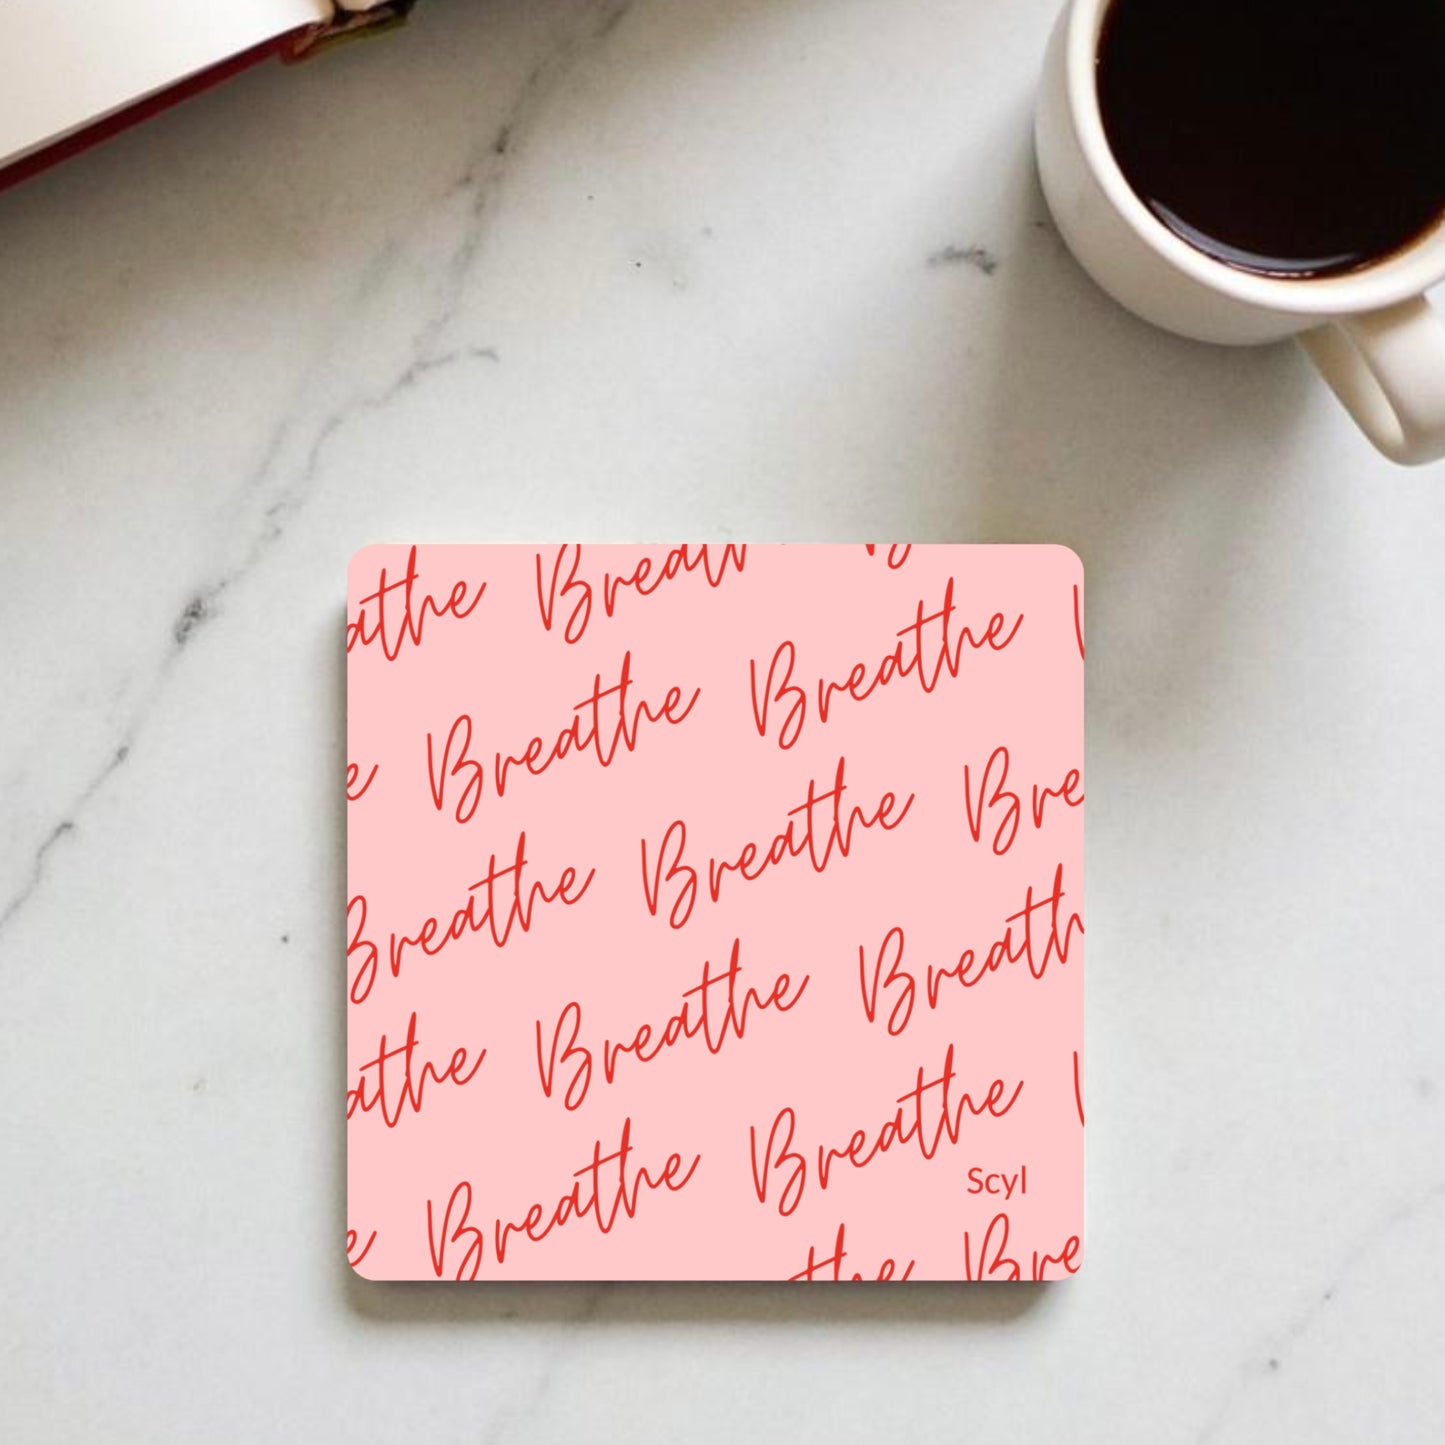 athe Breath
e Breathe Breathe
Breathe Breathe Bre
athe Breathe Breath
e Breathe Breathe
Scyl
the Bre